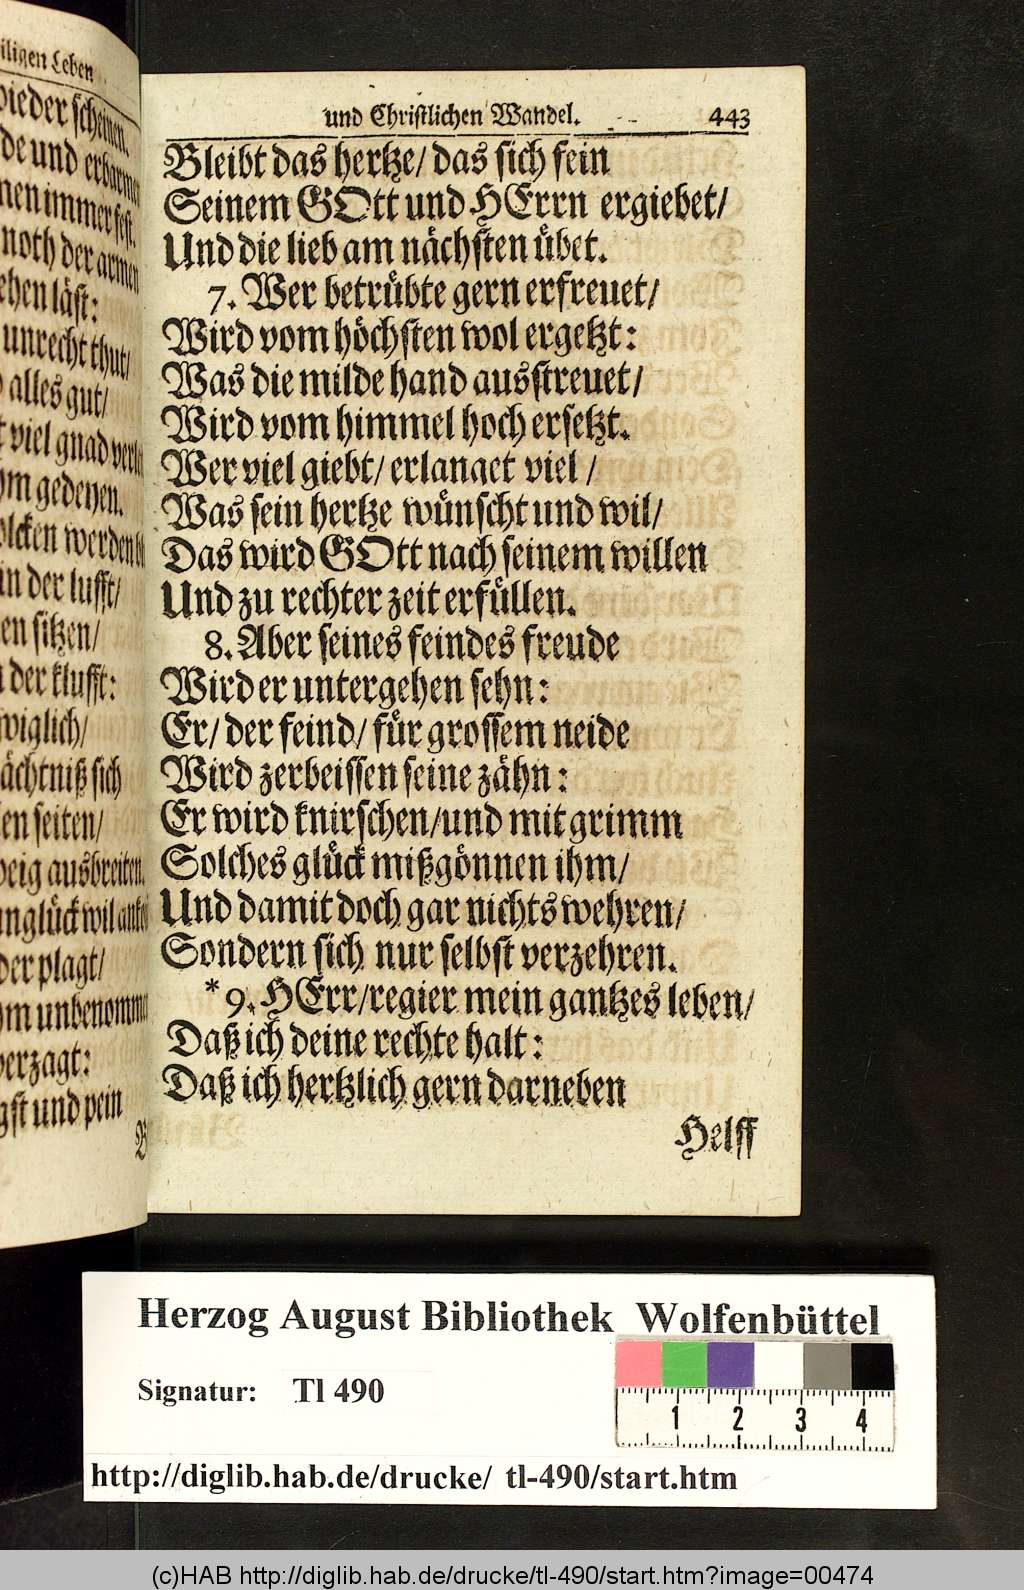 iligen Leben
wieder scheinen.
de und erbarmen
nen immer fest.
noth der armen
ehen läst:
unrecht thut/
alles gut/
viel gnad
m gedeyen.
olcken werden
in der lufft/
en sitzen/
der klufft:
wiglich/
ächtniß sich
en seiten/
weig ausbreiten.
unglück wil
der plagt/
hm unbenommen
verzagt:
gst und pein
und Christlichen Wandel. 443
Bleibt das hertze/ das sich fein
Seinem GOtt und HErrn ergiebet/
Und die lieb am nächsten übet.
7. Wer betrübte gern erfreuet/
Wird vom höchsten wol ergetzt:
Was die milde hand ausstreuet/
Wird vom himmel hoch ersetzt.
Wer viel giebt/ erlanget viel/
Was sein hertze wünscht und wil/
Das wird GOtt nach seinem willen
Und zu rechter zeit erfüllen.
8. Aber seines feindes freude
Wird er untergehen sehn:
Er/ der feind/ für grossem neide
Wird zerbeissen seine zähn:
Er wird knirschen/und mit grimm
Solches glück mißgönnen ihm/
Und damit doch gar nichts wehren/
Sondern sich nur selbst verzehren.
* 9. HErr/regier mein gantzes leben/
Daß ich deine rechte halt:
Daß ich hertzlich gern darneben
Helff
Herzog August Bibliothek Wolfenbüttel
Signatur: Tl 490
1 2 3 4
http://diglib.hab.de/drucke/ tl-490/start.htm
(c)HAB http://diglib.hab.de/drucke/tl-490/start.htm?image=00474